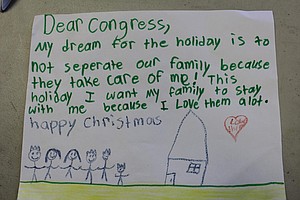 Dear Congress,
My dream for the holiday is to
not seperate our family because
they take care of me! This
holiday I want my family to stay
with me because I love them alot.
happy Christmas